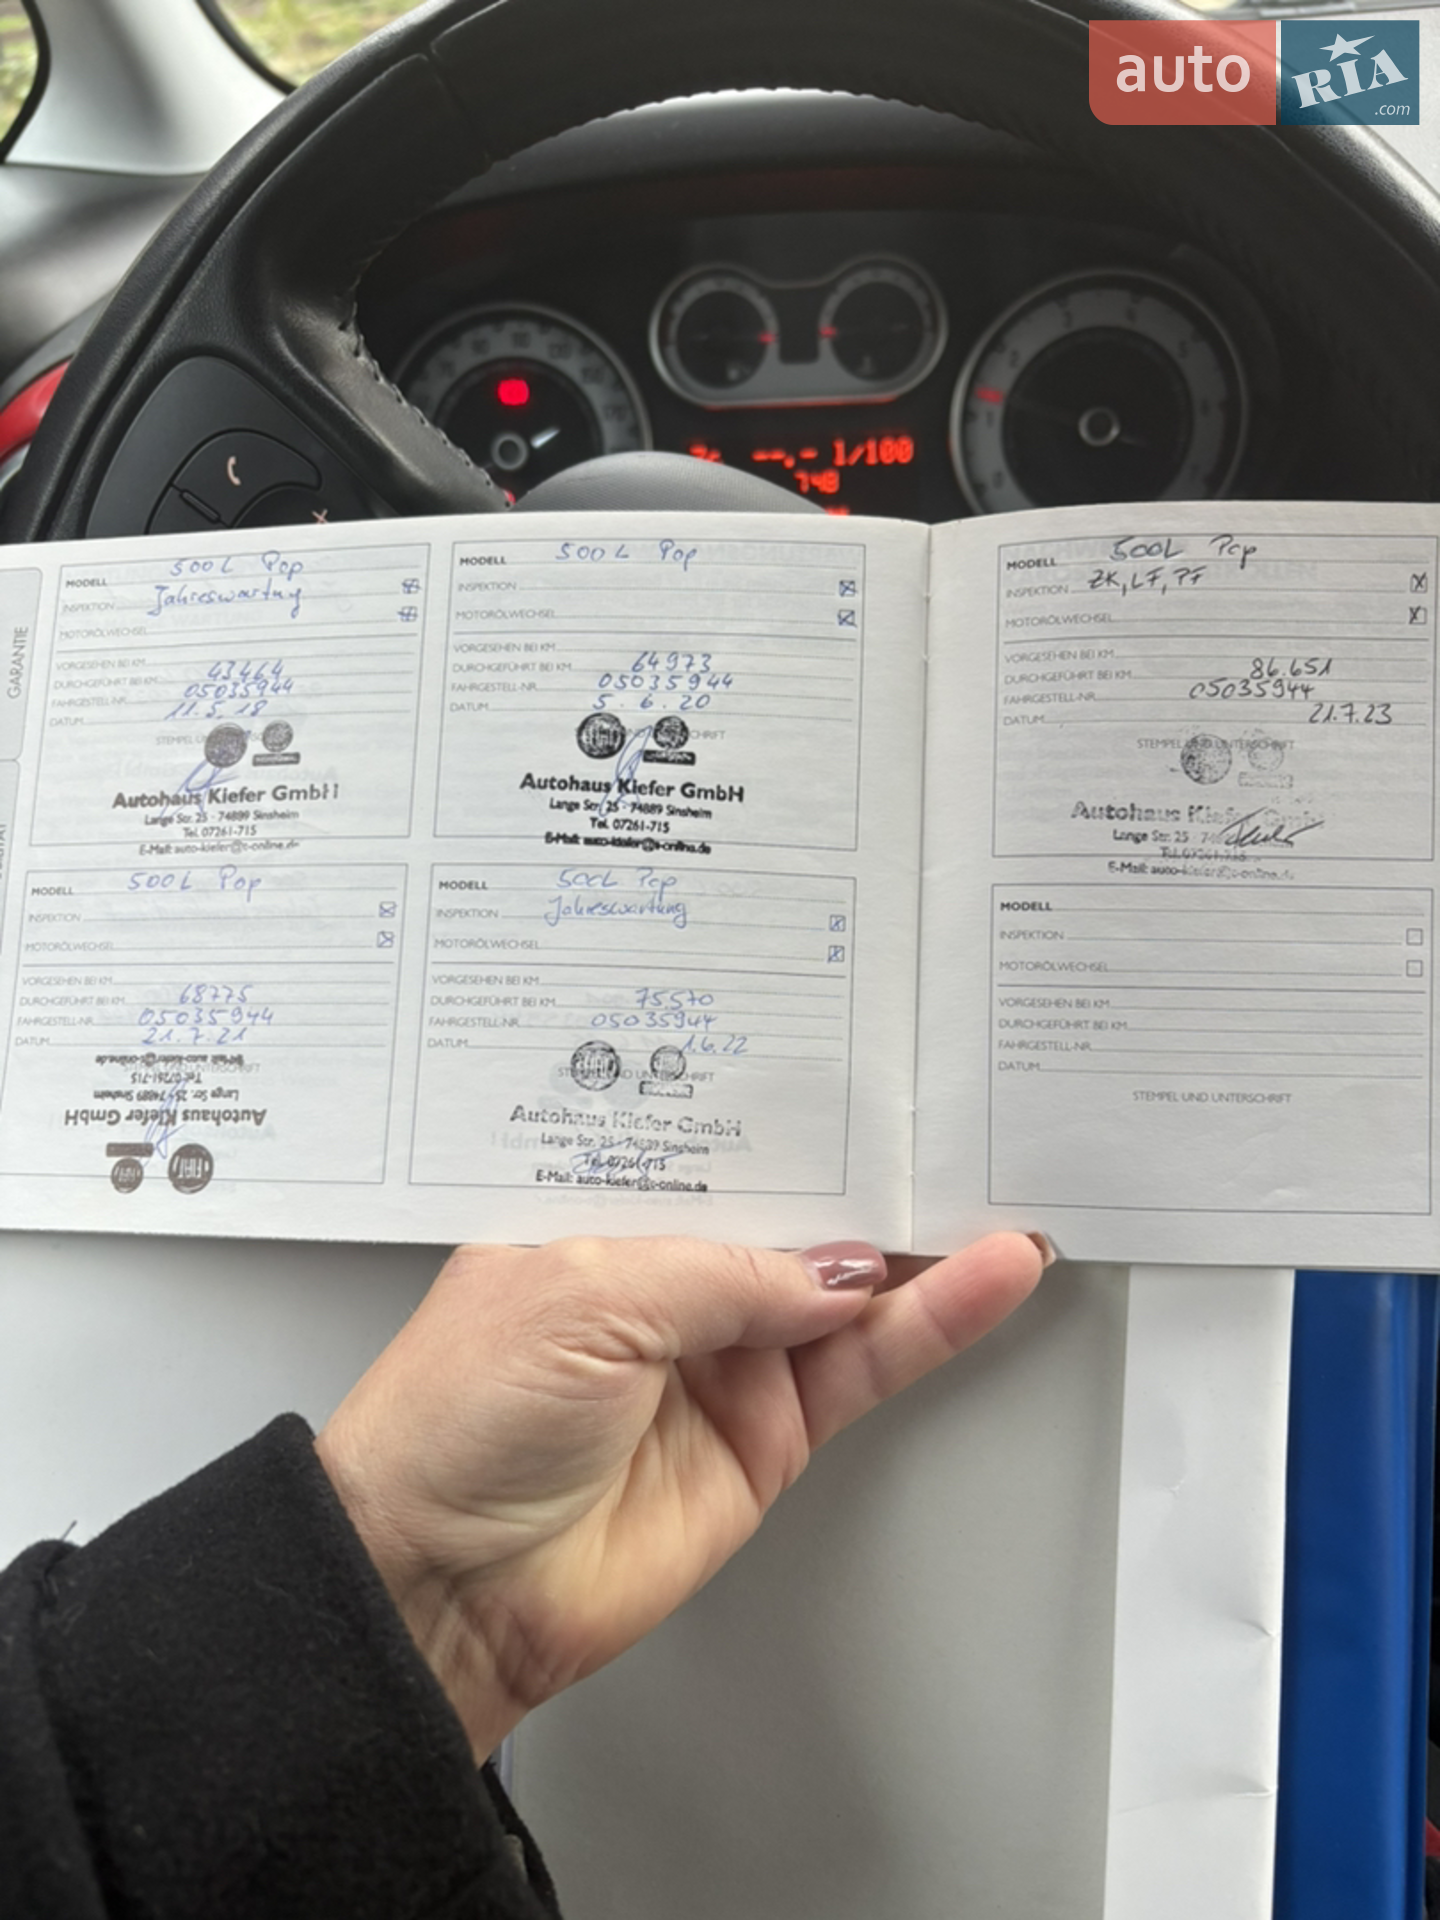 auto
RIA
.com
--,- 1/100
748
GARANTIE
MODELL 500L Pop
INSPEKTION Jahreswartung
MOTORÖLWECHSEL
VORGESEHEN BEI KM
DURCHGEFÜHRT BEI KM 43464
FAHRGESTELL-NR. 05035944
DATUM 11.5.18
Autohaus Kiefer GmbH
Lange Str. 25 - 74889 Sinsheim
Tel. 07261-715
E-Mail: auto-kiefer@t-online.de
MODELL 500L Pop
INSPEKTION
MOTORÖLWECHSEL
VORGESEHEN BEI KM
DURCHGEFÜHRT BEI KM 64973
FAHRGESTELL-NR. 05035944
DATUM 5.6.20
Autohaus Kiefer GmbH
Lange Str. 25 - 74889 Sinsheim
Tel. 07261-715
E-Mail: auto-kiefer@t-online.de
MODELL 500L Pop
INSPEKTION
MOTORÖLWECHSEL
VORGESEHEN BEI KM
DURCHGEFÜHRT BEI KM 68775
FAHRGESTELL-NR. 05035944
DATUM 21.7.21
FIAT
Autohaus Kiefer GmbH
Lange Str. 25 - 74889 Sinsheim
Tel. 07261-715
E-Mail: auto-kiefer@t-online.de
MODELL 500L Pop
INSPEKTION Jahreswartung
MOTORÖLWECHSEL
VORGESEHEN BEI KM
DURCHGEFÜHRT BEI KM 75.570
FAHRGESTELL-NR. 05035944
DATUM 1.6.22
FIAT
STEMPEL UND UNTERSCHRIFT
Autohaus Kiefer GmbH
Lange Str. 25 - 74889 Sinsheim
Tel. 07261-715
E-Mail: auto-kiefer@t-online.de
MODELL 500L Pop
INSPEKTION ZK, LF, PF
MOTORÖLWECHSEL
VORGESEHEN BEI KM
DURCHGEFÜHRT BEI KM 86.651
FAHRGESTELL-NR. 05035944
DATUM 21.7.23
STEMPEL UND UNTERSCHRIFT
Autohaus Kiefer GmbH
Lange Str. 25
Tel. 07261-715
E-Mail: auto-kiefer@t-online.de
MODELL
INSPEKTION
MOTORÖLWECHSEL
VORGESEHEN BEI KM
DURCHGEFÜHRT BEI KM
FAHRGESTELL-NR.
DATUM
STEMPEL UND UNTERSCHRIFT